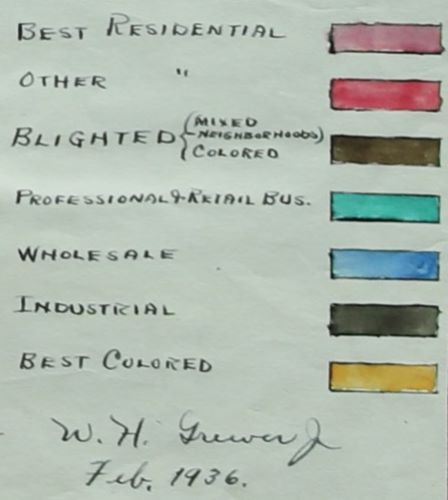 BEST RESIDENTIAL
OTHER "
BLIGHTED { (MIXED
NEIGHBORHOODS)
COLORED
PROFESSIONAL & RETAIL BUS.
WHOLESALE
INDUSTRIAL
BEST COLORED
W. H.
Feb. 1936.